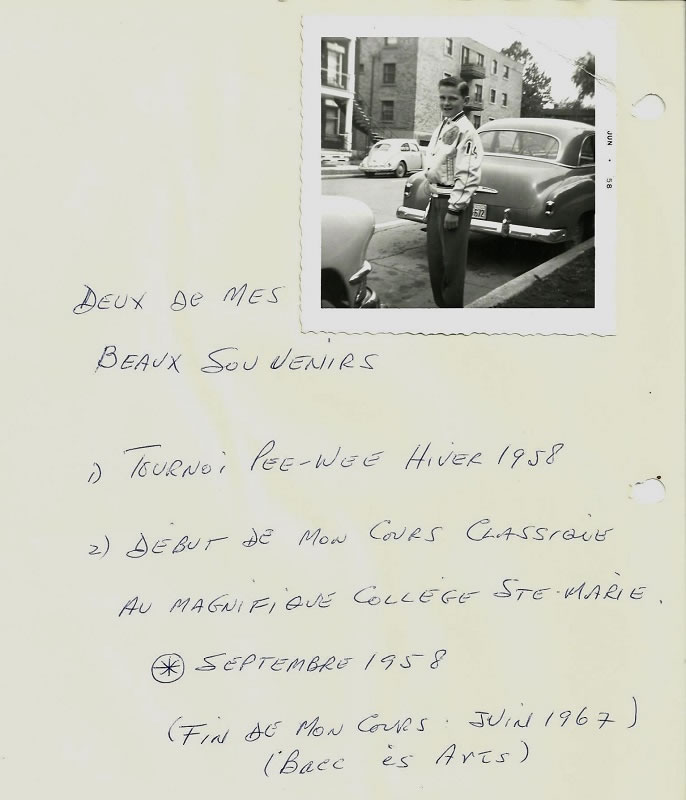 JUN • 58
14
DEUX DE MES
BEAUX SOUVENIRS
1) TOURNOI PEE-WEE HIVER 1958
2) DÉBUT DE MON COURS CLASSIQUE
AU MAGNIFIQUE COLLÈGE STE-MARIE.
* SEPTEMBRE 1958
(FIN DE MON COURS : JUIN 1967)
(BACC ès ARTS)